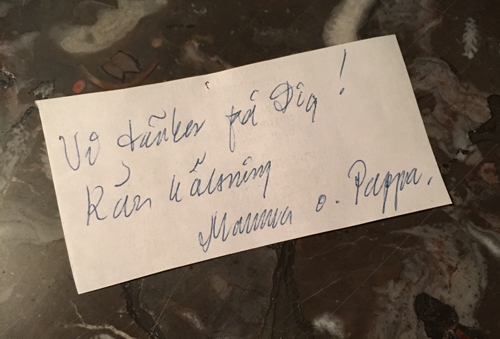 Vi tänker på Dig!
Kär hälsning
Mamma o. Pappa.